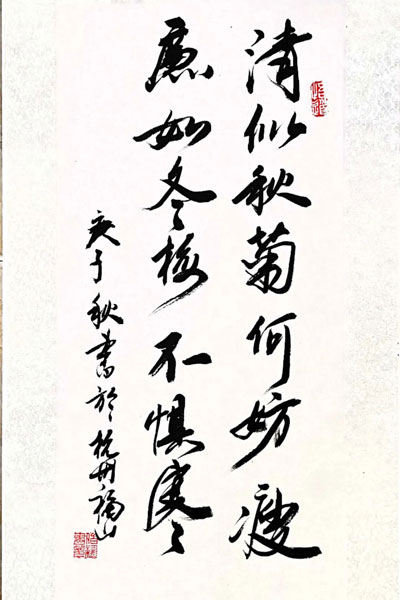 清似秋菊何妨瘦
廉如冬梅不惧寒
庚子秋書於杭州福山